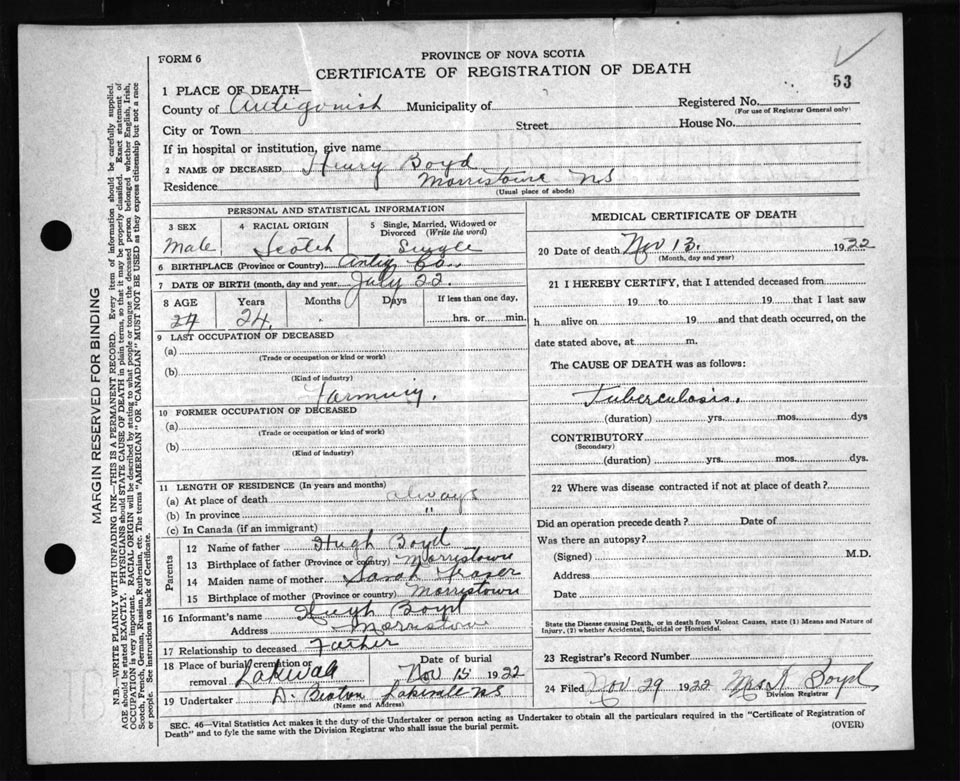 FORM 6
PROVINCE OF NOVA SCOTIA
CERTIFICATE OF REGISTRATION OF DEATH
53
1 PLACE OF DEATH—
County of Antigonish Municipality of Registered No.
(For use of Registrar General only)
City or Town Street House No.
If in hospital or institution, give name
2 NAME OF DECEASED Henry Boyd
Residence Morristown NS
(Usual place of abode)
PERSONAL AND STATISTICAL INFORMATION
3 SEX 4 RACIAL ORIGIN 5 Single, Married, Widowed or Divorced (Write the word)
Male Scotch Single
6 BIRTHPLACE (Province or Country) Antig Co.
7 DATE OF BIRTH (month, day and year) July 22.
8 AGE Years Months Days If less than one day,
24 24. hrs. or min.
9 LAST OCCUPATION OF DECEASED
(a)
(Trade or occupation or kind or work)
(b)
(Kind of industry)
Farming.
10 FORMER OCCUPATION OF DECEASED
(a)
(Trade or occupation or kind of work)
(b)
(Kind of industry)
11 LENGTH OF RESIDENCE (In years and months)
(a) At place of death always
(b) In province "
(c) In Canada (if an immigrant)
Parents
12 Name of father Hugh Boyd
13 Birthplace of father (Province or country) Morristown
14 Maiden name of mother Sarah Fraser
15 Birthplace of mother (Province or country) Morristown
16 Informant's name Hugh Boyd
Address Morristown
17 Relationship to deceased Father
18 Place of burial, cremation or removal Lakevale Date of burial Nov 15 1922
19 Undertaker Beaton Lakevale NS
(Name and Address)
MEDICAL CERTIFICATE OF DEATH
20 Date of death Nov 13. 1922
(Month, day and year)
21 I HEREBY CERTIFY, that I attended deceased from
19 to 19 that I last saw
h alive on 19 and that death occurred, on the
date stated above, at m.
The CAUSE OF DEATH was as follows:
Tuberculosis.
(duration) yrs. mos. dys
CONTRIBUTORY
(Secondary)
(duration) yrs. mos. dys.
22 Where was disease contracted if not at place of death?
Did an operation precede death? Date of
Was there an autopsy?
(Signed) M.D.
Address
Date
State the Disease causing Death, or in death from Violent Causes, state (1) Means and Nature of
Injury, (2) whether Accidental, Suicidal or Homicidal.
23 Registrar's Record Number
24 Filed Nov 29 1922 Boyd
Division Registrar
SEC. 46—Vital Statistics Act makes it the duty of the Undertaker or person acting as Undertaker to obtain all the particulars required in the "Certificate of Registration of
Death" and to fyle the same with the Division Registrar who shall issue the burial permit.
(OVER)
MARGIN RESERVED FOR BINDING
N.B.—WRITE PLAINLY WITH UNFADING INK—THIS IS A PERMANENT RECORD. Every item of information should be carefully supplied.
AGE should be stated EXACTLY. PHYSICIANS should STATE CAUSE OF DEATH in plain terms, so that it may be properly classified. Exact statement of
OCCUPATION is very important. RACIAL ORIGIN will be described by stating to what people or tongue the deceased person belonged whether English, Irish,
Scotch, French, German, Russian, Ruthenian, etc. The terms "AMERICAN" OR "CANADIAN" MUST NOT BE USED as they express citizenship but not a race
or people. See instructions on back of Certificate.